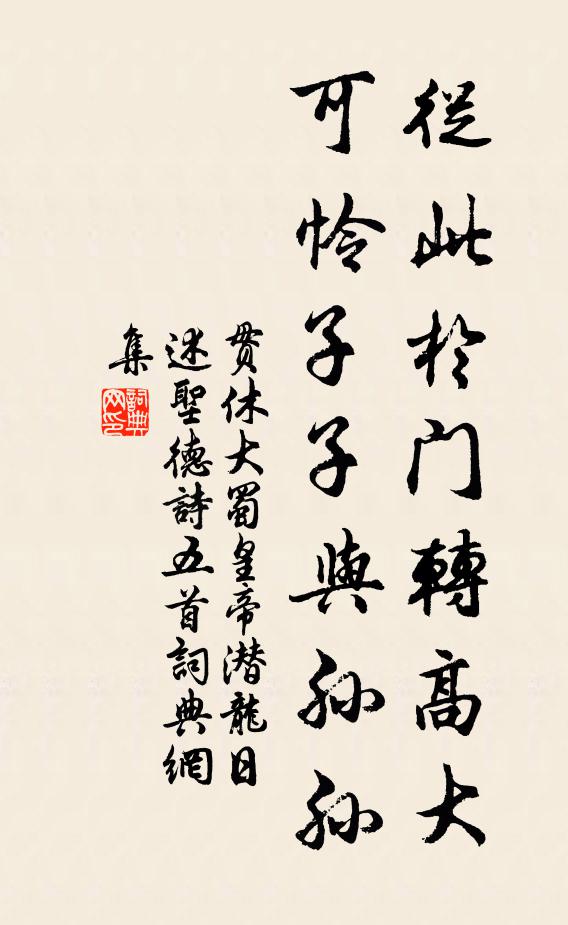 從此於門轉高大
可憐子子與孫孫
貫休大蜀皇帝潜龍日
述聖德詩五首詞典網
集
詞典
网印